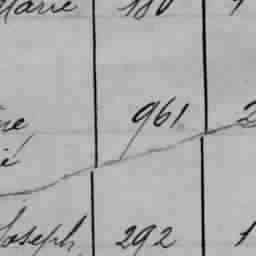 Marie 180 1
ne 961 2
é
Joseph 292 1